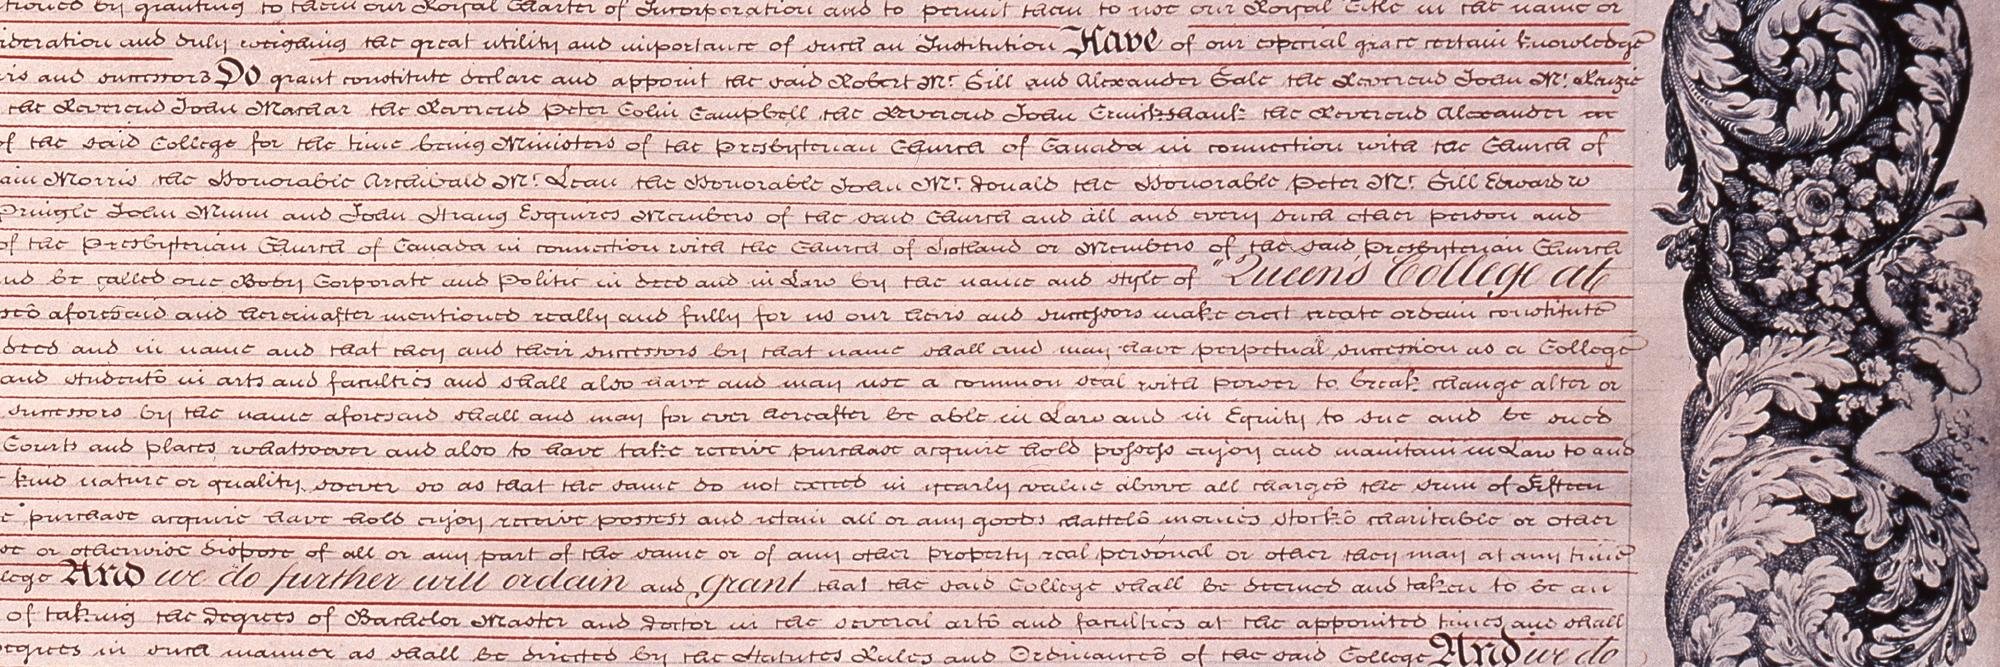 tioned by granting to them our Royal Charter of Incorporation and to permit them to use our Royal Title in the name or
ideration and duly weighing the great utility and importance of such an Institution Have of our especial grace certain knowledge
rs and successors Do grant constitute declare and appoint the said Robert Mc. Gill and Alexander Gale the Reverend John Mc. Kenzie
the Reverend John Machar the Reverend Peter Colin Campbell the Reverend John Cruikshank the Reverend Alexander
of the said College for the time being Ministers of the Presbyterian Church of Canada in connection with the Church of
ain Morris the Honorable Archibald Mc. Lean the Honorable John Mc. Donald the Honorable Peter Mc. Gill Edward W
Pringle John Munn and John Strang Esquires Members of the said Church and all and every such other person and
of the Presbyterian Church of Canada in connection with the Church of Scotland or Members of the said Presbyterian Church
nd be called one Body Corporate and Politic in deed and in Law by the name and style of "Queens College at
aforesaid and hereinafter mentioned really and fully for us our heirs and successors make erect create ordain constitute
deed and in name and that they and their successors by that name shall and may have perpetual succession as a College
and students in arts and faculties and shall also have and may use a common seal with power to break change alter or
successors by the name aforesaid shall and may for ever hereafter be able in Law and in Equity to sue and be sued
Courts and places whatsoever and also to have take receive purchase acquire hold possess enjoy and maintain in Law to and
kind nature or quality soever so as that the same do not exceed in yearly value above all charges the sum of Fifteen
purchase acquire have hold enjoy receive possess and retain all or any goods chattels monies stocks charitable or other
se or otherwise dispose of all or any part of the same or of any other property real personal or other they may at any time
lege And we do further will ordain and grant that the said College shall be deemed and taken to be an
of taking the degrees of Bachelor Master and Doctor in the several arts and faculties at the appointed times and shall
egrees in such manner as shall be directed by the Statutes Rules and Ordinances of the said College And we do